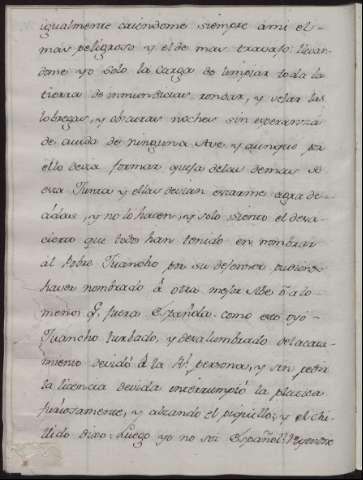 igualmente caiendome siempre á mi el
mas peligroso y el de mas travajo llevan-
dome yo solo la carga de limpiar toda la
tierra de inmundicias rondar, y velar las
lobregas, y obscuras noches sin esperanza
de aiuda de ninguna Ave, y aunque por
ello devia formar queja de las demas de
esta Junta y ellas devian estarme agrade-
cidas, y no lo hacen, y solo siento el desa-
cierto que todos han tenido en nombrar
al Juancho por su defensor pudiendo
haver nombrado á otra mejor Ave q.e a lo
menos q.e fuera Española como esto oyó
Juancho turbado, y deslumbrado del acata-
miento devido á la R.l persona, y sin pedir
la licencia devida interrumpió la platica
furiosamente, y alzando el piquillo, y el chi-
llido dixo: Luego yo no soi Español? Responde